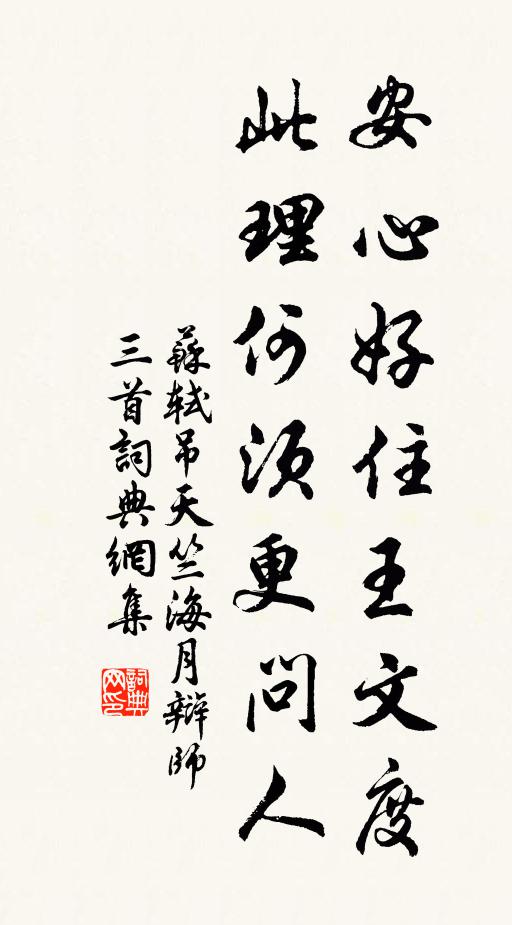 安心好住王文度
此理何須更問人
蘇軾吊天竺海月辯師
三首詞典網集
詞典
网印